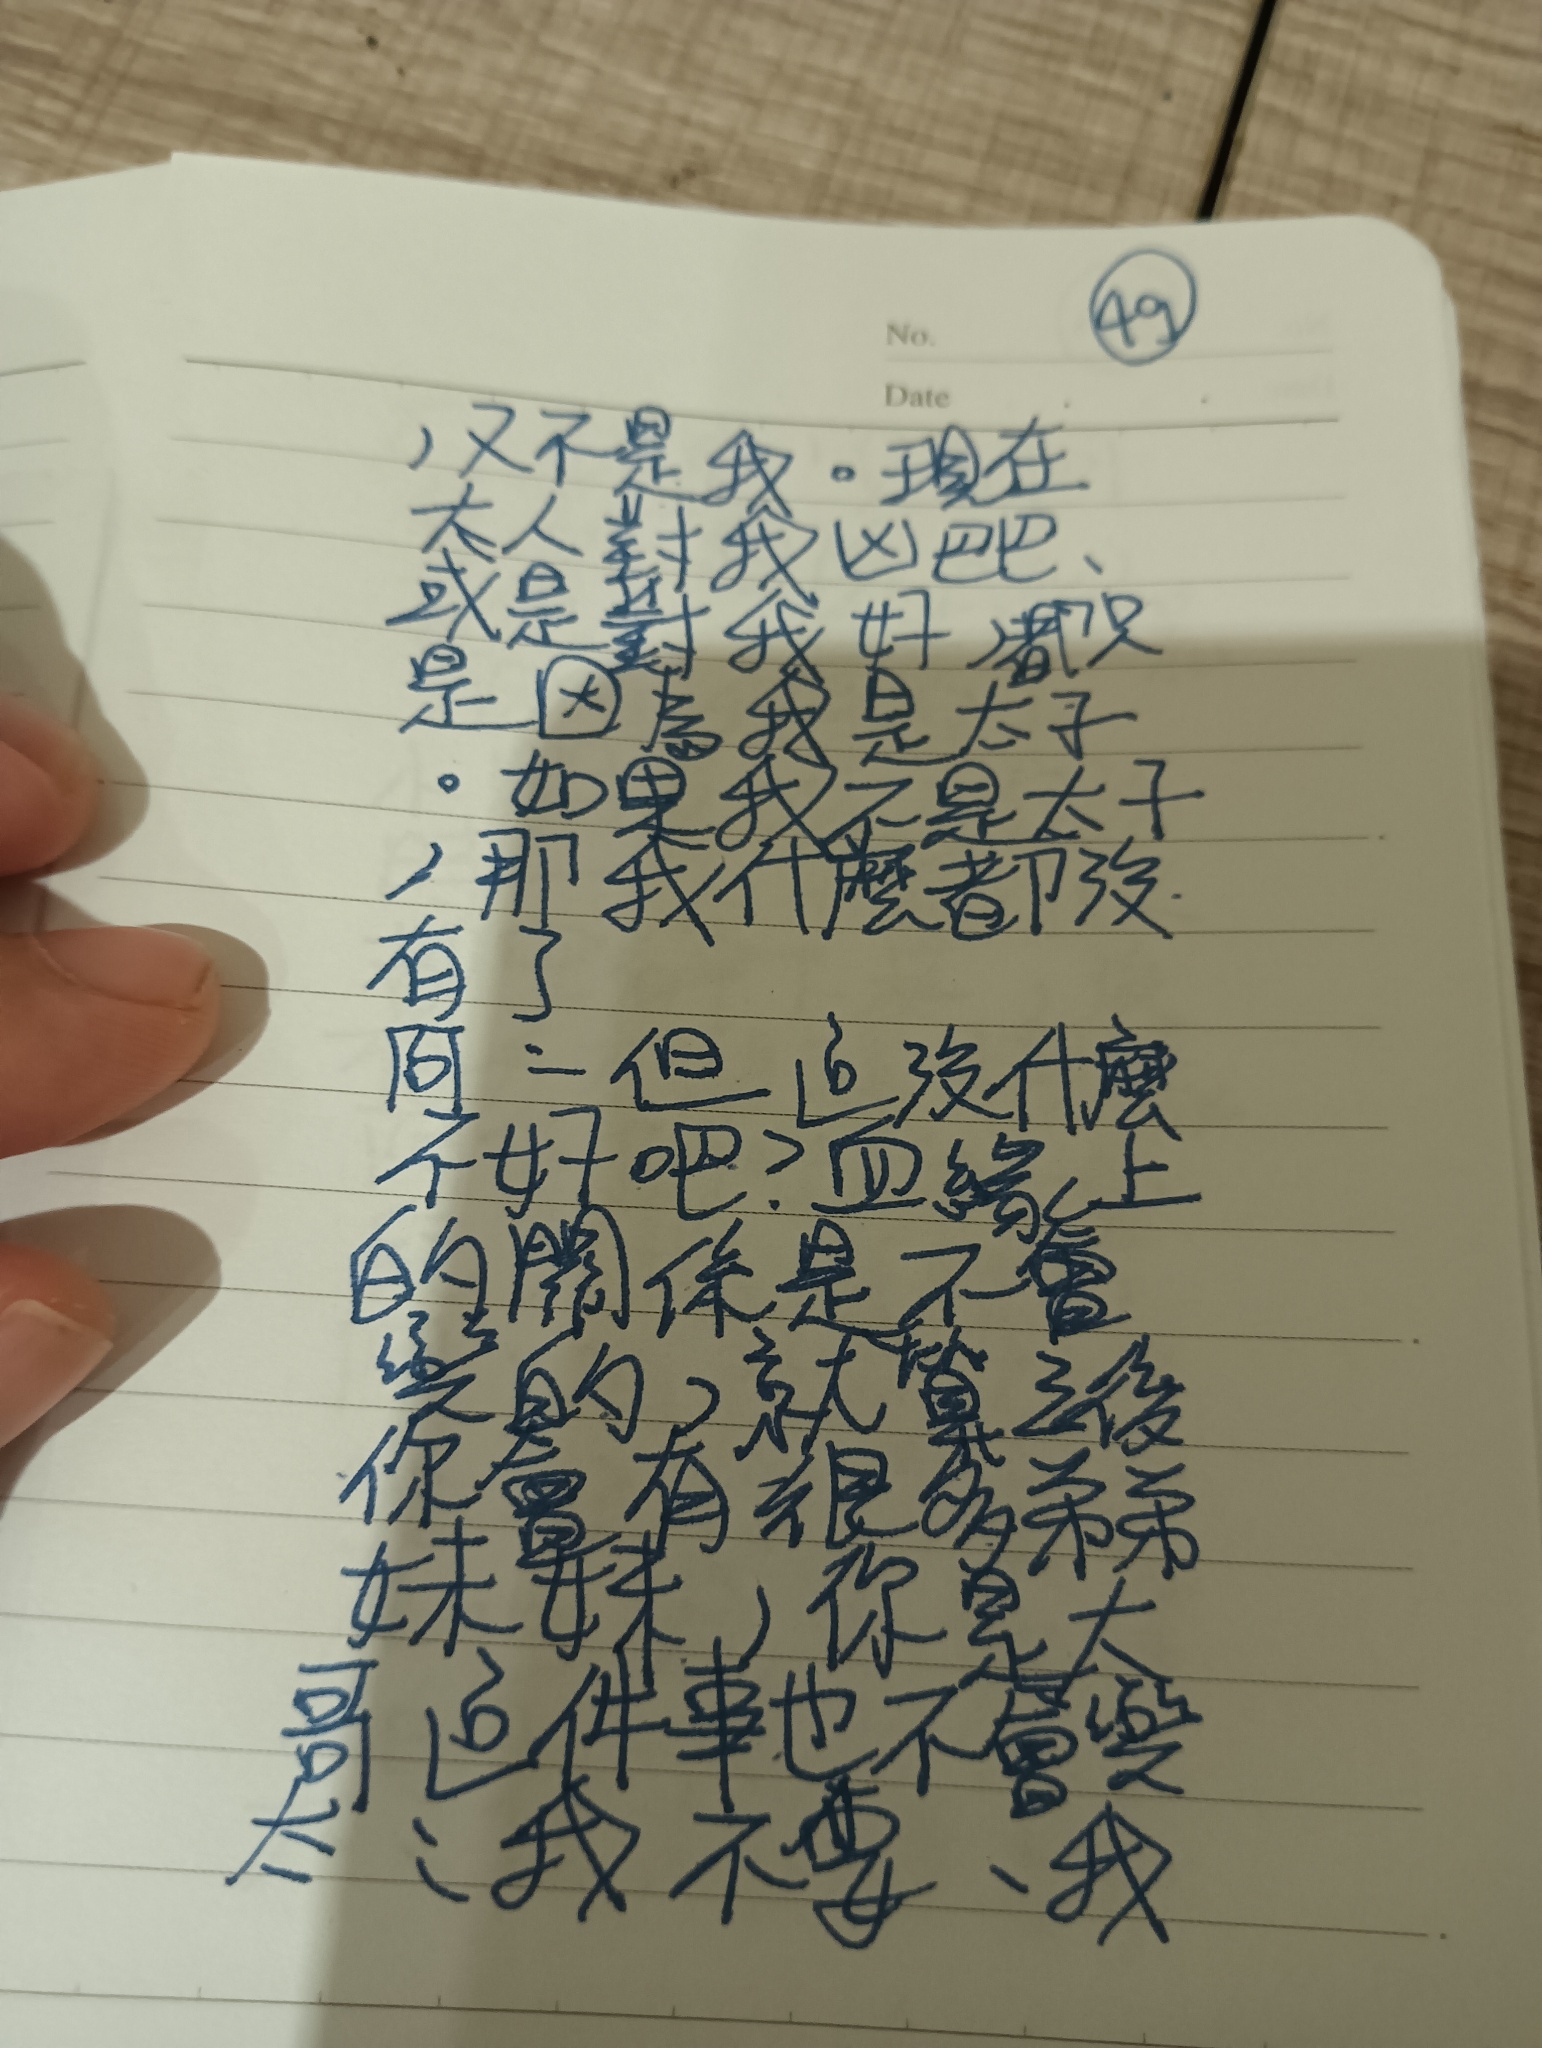 49
No.
Date
，又不是我。現在
大人對我凶巴巴、
或是對我好，都只
是因為我是太子
。如果我不是太子
，那我什麼都沒
有了
同：但這沒什麼
不好吧？血緣上
的關係是不會
變的，就算之後
你會有很多弟弟
妹妹，你是大
哥這件事也不會變
：我不要、我